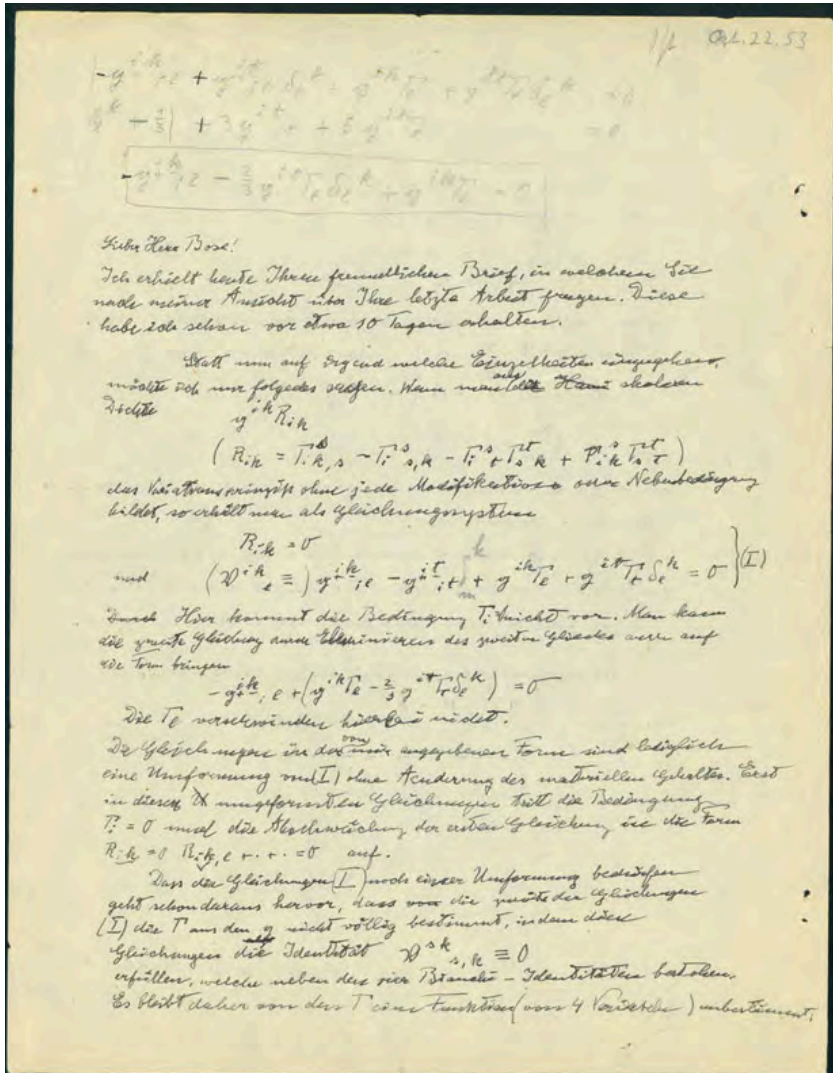 Oct. 22. 53
Lieber Herr Bose!
Ich erhielt heute Ihren freundlichen Brief, in welchem Sie
nach meiner Ansicht über Ihre letzte Arbeit fragen. Diese
habe ich schon vor etwa 10 Tagen erhalten.
Statt nun auf irgend welche Einzelheiten einzugehen,
möchte ich nur folgendes sagen. Wenn man aus der skalaren
Dichte
g^{ik} R_{ik}
(R_{ik} = Γ_i^s_{k,s} − Γ_i^s_{s,k} − Γ_i^s_t Γ_s^t_k + Γ_i^s_k Γ_s^t_t)
das Variationsprinzip ohne jede Modifikation oder Nebenbedingung
bildet, so erhält man als Gleichungssystem
R_{ik} = 0
und (𝔙^{ik}_e ≡) g^{ik}_{;e} − g^{it}_{;t} δ^k + g^{ik} Γ_e + g^{it} Γ_t δ_e^k = 0 } (I)
Hier kommt die Bedingung Γ_i nicht vor. Man kann
die zweite Gleichung durch Eliminieren des zweiten Gliedes auf
die Form bringen
− g^{ik}_{;e} + (g^{ik} Γ_e − 2/3 g^{it} Γ_t δ_e^k) = 0
Die Γ_e verschwinden hierbei nicht.
Die Gleichungen in der von mir angegebenen Form sind lediglich
eine Umformung von (I) ohne Aenderung des materiellen Gehaltes. Erst
in diesen umgeformten Gleichungen tritt die Bedingung
Γ_i = 0 und die Abschwächung der ersten Gleichung in die Form
R_{ik} = 0 R_{ik,e} + · + · = 0 auf.
Dass die Gleichungen (I) noch einer Umformung bedürfen
geht schon daraus hervor, dass die zweite der Gleichungen
(I) die Γ aus den g nicht völlig bestimmt, indem diese
Gleichungen die Identität 𝔙^{sk}_{s,k} ≡ 0
erfüllen, welche neben den vier Bianchi-Identitäten bestehen.
Es bleibt daher von den Γ eine Funktion (von 4 Variabeln) unbestimmt.